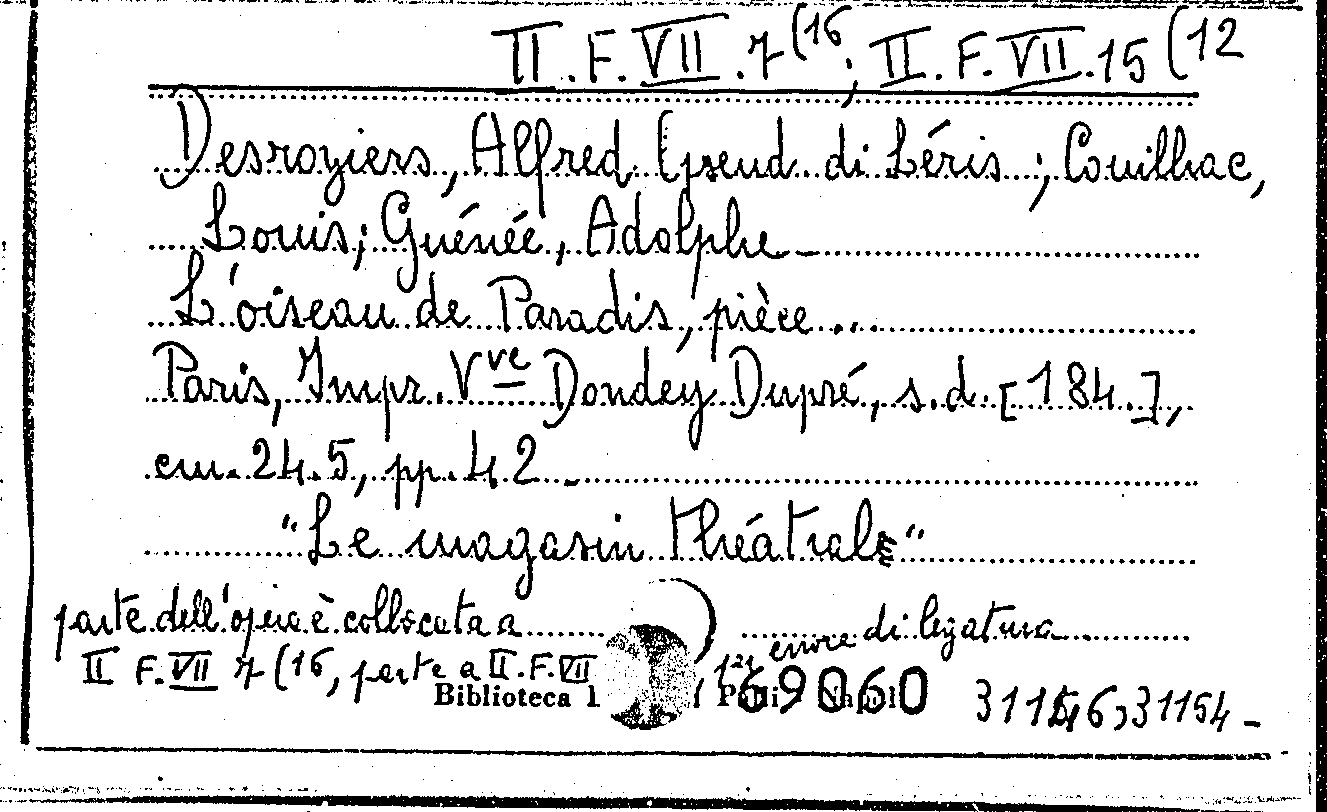 II.F.VII.7(16; II.F.VII.15(12
Desroziers, Alfred (pseud. di Léris; Couilhac,
Louis; Guénée, Adolphe
L'oiseau de Paradis, pièce...
Paris, Impr. Vve Dondey Dupré, s.d. [184.],
cm. 24.5, pp. 42
"Le magasin théâtrale"
parte dell'opera è collocata a
II F. VII 7(16, parte a II.F.VII
per errore di legatura
Biblioteca
69060
31154